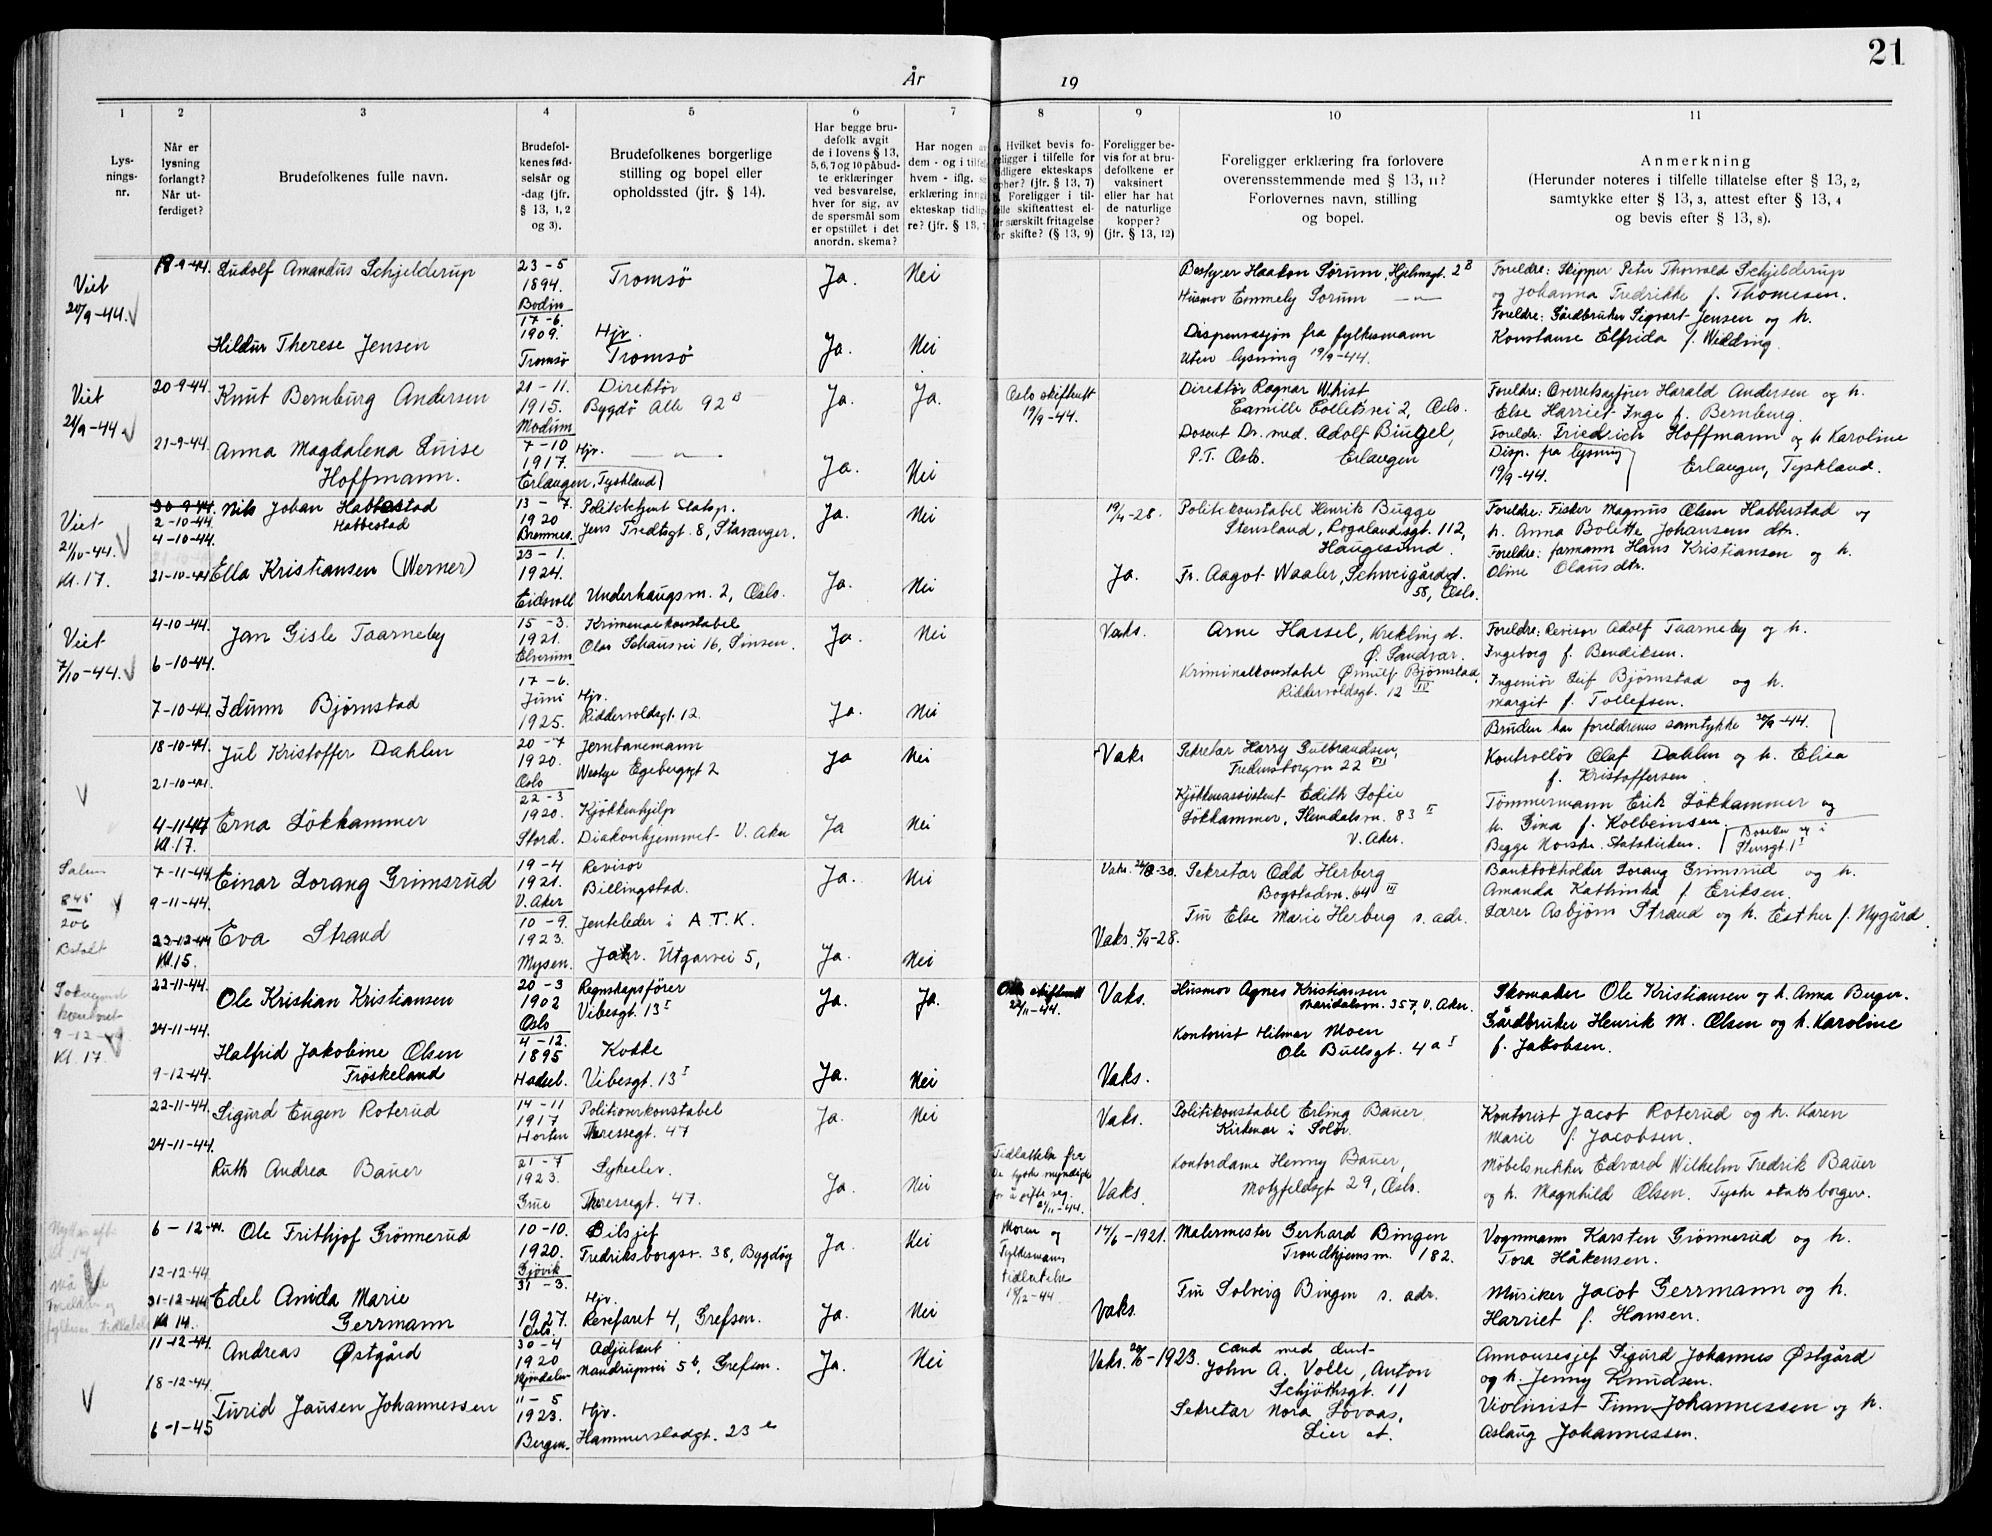 År 19
21
1
2
3
4
5
6
7
8
9
10
11
Lys-
nings-
nr.
Når er
lysning
forlangt?
Når ut-
ferdiget?
Brudefolkenes fulle navn.
Brudefol-
kenes fød-
selsår og
-dag (jfr.
§ 13, 1, 2
og 3).
Brudefolkenes borgerlige
stilling og bopel eller
opholdssted (jfr. § 14).
Har begge bru-
defolk avgit
de i lovens § 13,
5, 6, 7 og 10 påbud-
te erklæringer
ved besvarelse,
hver for sig, av
de spørsmål som
er opstillet i det
anordn. skema?
Har nogen
dem - og i tilf
hvem - iflg.
erklæring inng
ekteskap tidlig
re? (jfr. § 13,
Hvilket bevis fo-
religger i tilfelle for
tidligere ekteskaps
opher? (jfr. § 13, 7)
Foreligger i til-
felle skifteattest el-
ler særskilt fritagelse
for skifte? (§ 13, 9)
Foreligger be-
vis for at bru-
defolkene er
vaksinert
eller har hat
de naturlige
kopper?
(jfr. § 13, 12)
Foreligger erklæring fra forlovere
overensstemmende med § 13, 11?
Forlovernes navn, stilling
og bopel.
Anmerkning
(Herunder noteres i tilfelle tillatelse efter § 13, 2,
samtykke efter § 13, 3, attest efter § 13, 4
og bevis efter § 13, 8).
Viet
20/9-44.
19-9-44.
Ludolf Amandus Schjelderup
23-5
1894.
Bodin
Tromsø
Ja.
Nei
Bestyrer Haakon Sørum, Hjelmsgt. 2 B
Husmor Emmely Sorum —"—
Foreldre: Skipper Peter Thorvald Schjelderup
og Johanna Fredrikke f. Thomesen.
Hildur Therese Jensen
17-6.
1909.
Tromsø
Hjv.
Tromsø
Ja.
Nei
Dispensasjon fra fylkesmann
uten lysning 19/9-44.
Foreldre: Gårdbruker Sigvart Jensen og h.
Konstanse Elfrida f. Widding.
Viet
21/9-44
20-9-44.
Knut Bernburg Andersen
21-11.
1915.
Modum
Direktør
Bygdø Alle 92 B
Ja.
Ja.
Oslo skifterett
19/9-44.
Direktør Ragnar Whist
Camille Colletsvei 2, Oslo.
Foreldre: Overretsagfører Harald Andersen og h.
Else Harriet Inge f. Bernburg.
21-9-44.
Anna Magdalena Luise
Hoffmann.
7-10
1917.
Erlangen, Tyskland
Hjv. —"—
Ja.
Nei
Dosent Dr. med. Adolf Bingel,
P.T. Oslo. Erlangen
Foreldr: Friedrich Hoffmann og h Karoline
Disp. fra lysning
19/9-44.
Erlangen, Tyskland.
Viet
21/10-44.
Kl. 17.
30-9-44.
2-10-44.
4-10-44.
21-10-44
Nils Johan Habbestad
Habbestad
13-7
1920
Bremnes.
Politibetjent Statsp.
Jens Tredtsgt. 8, Stavanger.
Ja.
Nei
19/4-28.
Politikonstabel Henrik Bugge
Stensland, Rogalandsgt. 112,
Haugesund.
Foreldre: Fisker Magnus Olsen Habbestad og
h. Anna Bolette Johansens dtr.
Ella Kristiansen (Werner)
23-1.
1924.
Eidsvoll
Underhaugsvn. 2, Oslo.
Ja.
Nei
Ja.
Fr. Aagot Waaler, Schweigårdsgt.
58, Oslo.
Foreldre: farmann Hans Kristiansen og h.
Oline Olaus dtr.
Viet
7/10-44.
4-10-44.
6-10-44.
7-10-44.
Jan Gisle Taarneby
15-3.
1921.
Elverum
Kriminalkonstabel
Olav Schousvei 16, Sinsen.
Ja.
Nei
Vaks.
Arne Hassel, Krekling st.
Ø. Sandsvær.
Foreldre: Revisor Adolf Taarneby og h.
Ingeborg f. Bendiksen.
Idunn Bjørnstad
17-6.
Juni
1925.
Hjv.
Riddervoldsgt. 12.
Ja.
Nei
Kriminalkonstabel Ørnulf Bjørnstad,
Riddervoldsgt. 12 IV
Ingeniør Leif Bjørnstad og h.
Margit f. Tollefsen.
Bruden har foreldrenes samtykke 30/9-44.
18-10-44.
21-10-44.
4-11 44
Kl. 17.
Jul Kristoffer Dahlen
20-7
1920.
Oslo
Jernbanemann
Westye Egebergsgt 2
Ja
Nei
Vaks
Sekretær Harry Gulbrandsen,
Fredensborgvn 22 VII
Kontrollør Olaf Dahlen og h. Elisa
f. Kristoffersen
Erna Lökhammer
22-3
1920.
Stord.
Kjøkkenhjelp
Diakonhjemmet V. Aker
Ja
Nei
Kjøkkenassistent Edith Sofie
Lökhammer, Slemdalsvn. 83 II
V. Aker.
Tömmermann Erik Lökhammer og
h. Gina f. Kolbeinsen.
Begge Norske Statskirken.
Bosetter seg i
Stensgt. 1 I
Salem
845
206
Betalt
7-11-44.
9-11-44.
23-12-44
Kl. 15.
Einar Lorang Grimsrud
19-4
1921.
V. Aker
Revisor
Billingstad.
Ja.
Nei
Vaks. 24/8-30.
Sekretær Odd Herberg
Bogstadvn. 64 III
Bankbokholder Lorang Grimsrud og h.
Amanda Kathinka f. Eriksen.
Eva Strand
10-9.
1923.
Mysen.
Jenteleder i A.T.K.
Jahr. Utgarvei 5,
Ja.
Nei
Vaks. 5/9-28.
Fru Else Marie Herberg s. adr.
Lærer Asbjørn Strand og h. Esther f. Nygård.
Kl. 17.
22-11-44.
24-11-44.
9-12-44.
Ole Kristian Kristiansen
20-3
1902
Oslo
Regnskapsfører
Vibesgt. 13 I
Ja.
Ja.
Oslo skifterett
22/11-44.
Vaks.
Husmor Agnes Kristiansen
Maridalsvn. 357, V. Aker.
Skomaker Ole Kristiansen og h. Anna Buger.
Halfrid Jakobine Olsen
Fröskeland
4-12.
1895
Hadsel.
Kokke
Vibesgt. 13 I
Ja.
Nei
Vaks.
Kontorist Hilmar Moen
Ole Bullsgt. 4 a I
Gårdbruker Henrik M. Olsen og h. Karoline
f. Jakobsen.
22-11-44.
24-11-44.
Sigurd Eugen Roterud
14-11
1917
Horten
Politioverkonstabel
Theressegt. 47
Ja.
Nei
Vaks.
Politikonstabel Erling Bauer,
Kirkenær i Solør.
Kontorist Jacob Roterud og h. Karen
Marie f. Jacobsen.
Ruth Andrea Bauer
21-7
1923.
Grue
Sykeelev.
Theressegt. 47.
Ja.
Nei
Tidlatelse fra
De tyske myndigh
for å gifte seg.
21/11-44.
Vaks.
Kontordame Henny Bauer,
Motzfeldsgt 29, Oslo.
Møbelsnekker Edvard Wilhelm Fredrik Bauer
og h. Magnhild Olsen. Tyske statsborgere.
6-12-44.
12-12-44
31-12-44
Kl 14.
Ole Frithjof Grönnerud
10-10.
1920.
Gjövik
Bilsjef
Fredriksborgsv. 38, Bygdøy
Ja.
Nei
Moren og
Fylkesmans
tidlatelse
18/12-44.
14/6-1921.
Malermester Gerhard Bingen
Trondhjemsvn. 182.
Vognmann Karsten Grönnerud og h.
Tora Håkensen.
Edel Anida Marie
Gerrmann
31-3.
1927.
Oslo.
Hjv.
Revefaret 4, Grefsen.
Ja.
Nei
Vaks.
Fru Solveig Bingen s. adr.
Musiker Jacob Gerrmann og h.
Harriet f. Hansen.
11-12-44.
18-12-44.
6-1-45
Andreas Østgård
30-4
1920
Adjutant
Nandrupsvei 5 b, Grefsen.
Ja.
Nei
Vaks. 20/6-1923.
Cand med dent
John A. Volle, Anton
Schjöthsgt. 11
Annonsesjef Sigurd Johannes Østgård
og h. Jenny Knudsen.
Turid Jansen Johannessen
11-5
1923.
Bergen.
Hjv.
Hammerstadgt. 23 e
Sekretær Nora Lovaas,
Lier st.
Violinist Finn Johannessen og h.
Aslaug Johannessen.